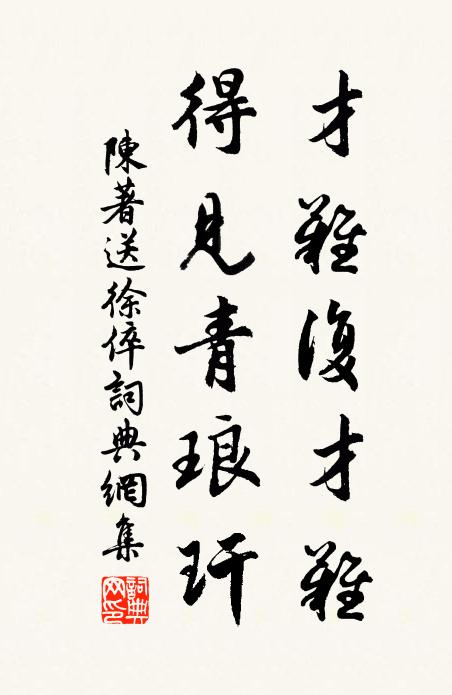 才難復才難
得見青琅玕
陳著送徐倅詞典網集
詞典
網印